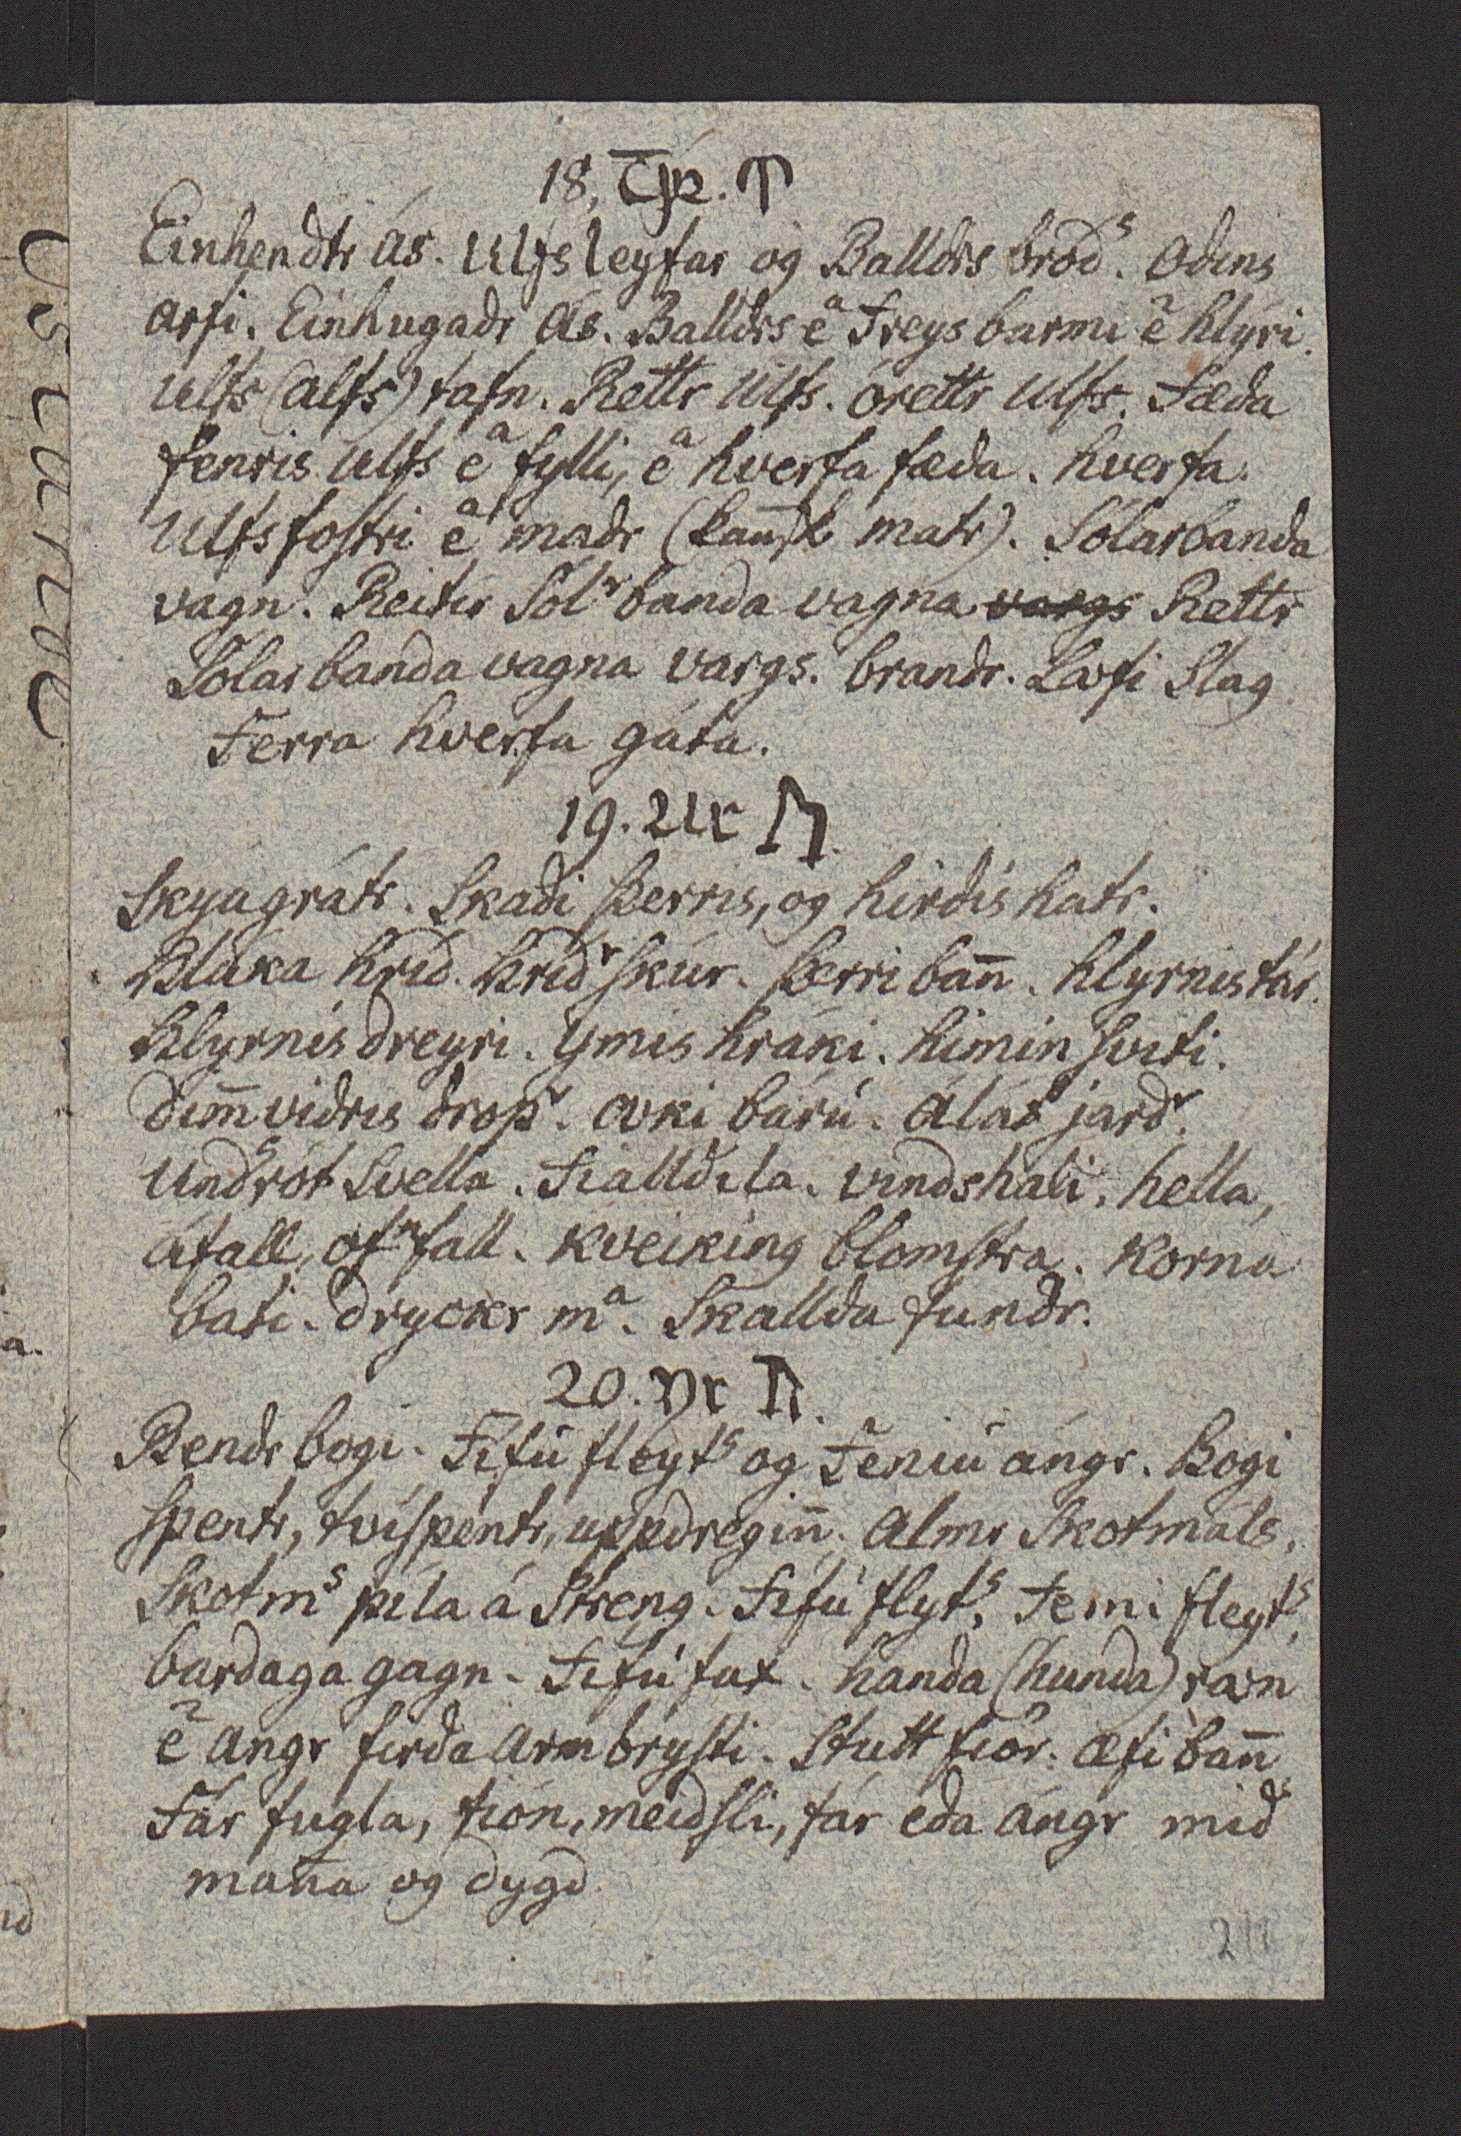 18. Tyr. ᛏ
Einhendtr ás. Ulfs leyfar og Balldrs brodˢ. Odins
arfi. Einhugadr Ás. Balldrs eᵃ Freys barmi eᵃ hlýri.
Ulfs (alfs) tafn. Rettr Ulfs. órettr Ulfs. Fæda
fenris Ulfs eᵃ fylli, eᵃ hverfa fæda. hverfa
Ulfs fostri eᵃ madr (kañsk matr). Sólarbanda
vagn. Reitir Solʳ banda vagna vargs Rettr
Sólar banda vagna vargs. brandr. Lævfi Slag
Ferra hverfa gáta.
19. Ur ᚢ.
Skyagrátr. Skadi þerris, og hirdis hatr.
Bláka hrid. hridʳ skúr. þerri bañ. hlyrnis tár.
hlyrnis dreyri. Ymis hráki. himin sviti.
dim̄vidris dropʳ. avki báru. álás jardʳ.
undʳrót Svella. Fialldila. vindshali. hella,
áfall, ofⁿfall. kveiking blomstra. korna
bati. dryckr mᵃ. Skallda fundr.
20. Yr ᛦ.
Bendr bogi. Fifu fleytˢ og Feniu ángr. Bogi
spentr, tvíspentr, uppdregiñ. Almr Skotmáls.
Skotmˢ píla á Streng. Fifu flytˢ, Femi fleytˢ,
bardaga gagn. Fifu fax. handa (hunda) ravn
eᵃ angr firda Armbrysti. Stutt fiör. æfi bañ
Fár fugla, tión, meidsli, fár eda ángr mid
maña og dygd